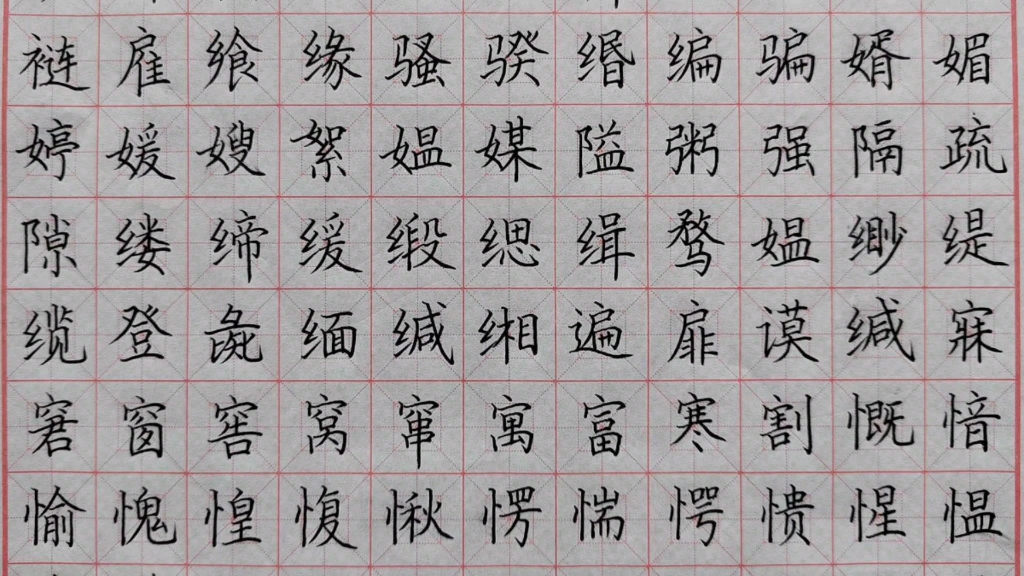 裢雇飨缘骚骙缗编骗婿媚
婷媛嫂絮媪媒隘粥强隔疏
隙缕缔缓缎缌缉骛媪缈缇
缆登彘缅缄缃遍扉谟缄寐
窘窗窖窝窜寓富寒割慨愔
愉愧惶愎愀愣惴愕愦惺愠